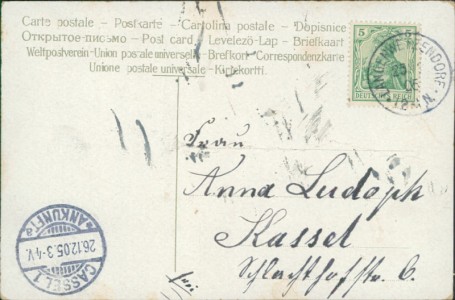 Carte postale – Postkarte – Cartolina postale – Dopisnice
Открытое письмо – Post card – Levelező-Lap – Briefkaart
Weltpostverein – Union postale universelle – Brefkort – Correspondenzkarte
Unione postale universale – Kirjekortti
5
DEUTSCHES REICH
Frau
Anna Ludolph
Kassel
Schlachthofstr. 6.
ANKUNFT
26.12.05.3-4V.
CASSEL 1